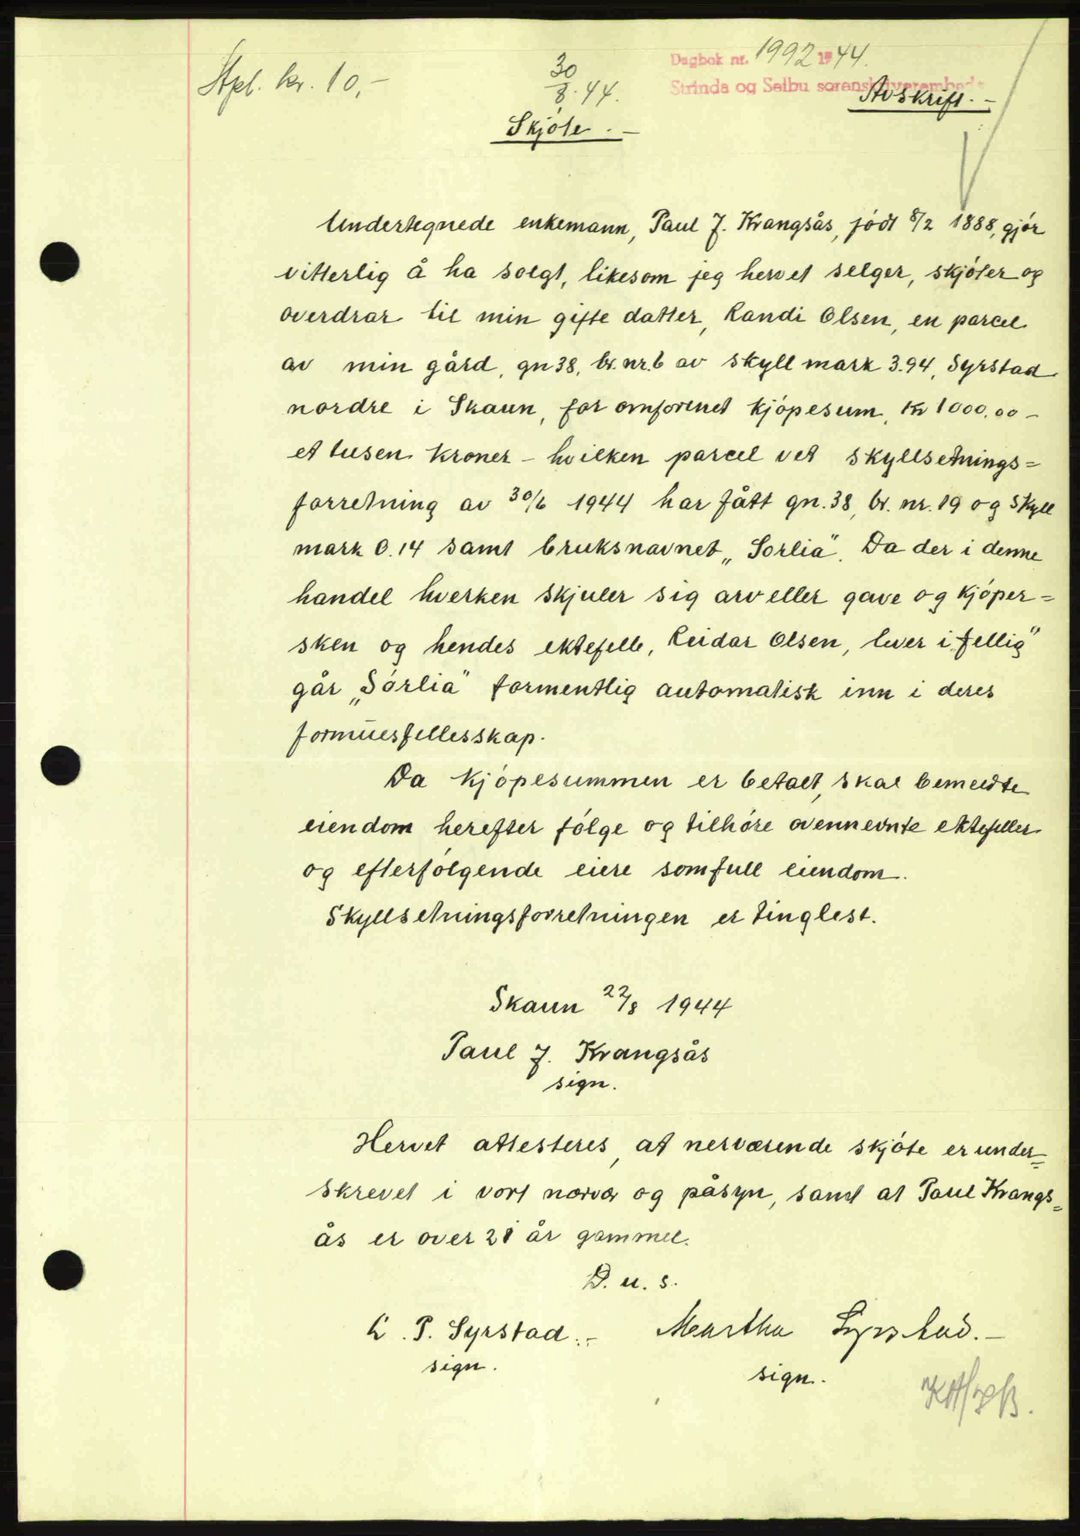 Stpl. kr. 10,-
30/8.44.
Dagbok nr. 1992 1944.
Strinda og Selbu sorenskriverembede
Avskrift.-
Skjöte.-
Undertegnede enkemann, Paul J. Krangsås, födt 8/2 1888, gjör
vitterlig å ha solgt, likesom jeg hervet selger, skjöter og
overdrar til min gifte datter, Randi Olsen, en parcel
av min gård, gn 38, br. nr. 6 av skyll mark 3.94, Syrstad
nordre i Skaun, for omforenet kjöpesum, Kr 1000.00 -
et tusen kroner - hvilken parcel vet skyllsetnings=
forretning av 30/6 1944 har fått gn. 38, br. nr. 19 og skyll
mark 0.14 samt bruksnavnet „Sorlia". Da der i denne
handel hverken skjuler sig arv eller gave og kjöper=
sken og hendes ektefelle, Reidar Olsen, lever i „fellig"
går „Sörlia" formentlig automatisk inn i deres
formuesfellesskap.
Da kjöpesummen er betalt, skal bemeldte
eiendom herefter fölge og tilhöre ovennevnte ektefeller
og efterfölgende eiere som full eiendom.
Skyllsetningsforretningen er tinglest.
Skaun 22/8 1944
Paul J. Krangsås
sign.
Hervet attesteres, at nerværende skjöte er under=
skrevet i vort nærvær og påsyn, samt at Paul Krangs=
ås er over 21 år gammel.
D. u. s.
P. Syrstad.- Martha Syrstad.-
sign. sign.